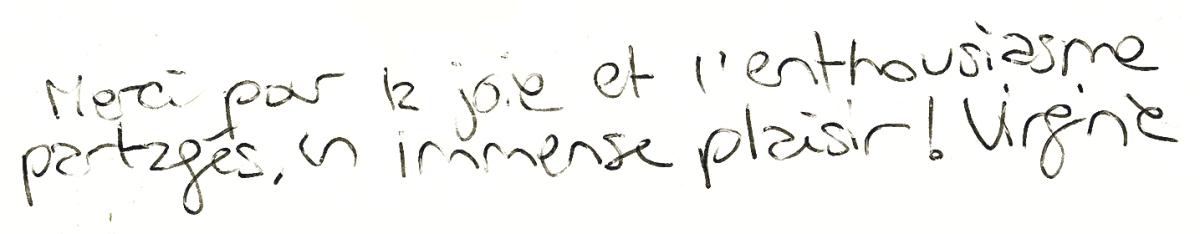 Merci pour la joie et l'enthousiasme
partagés, un immense plaisir ! Virginie